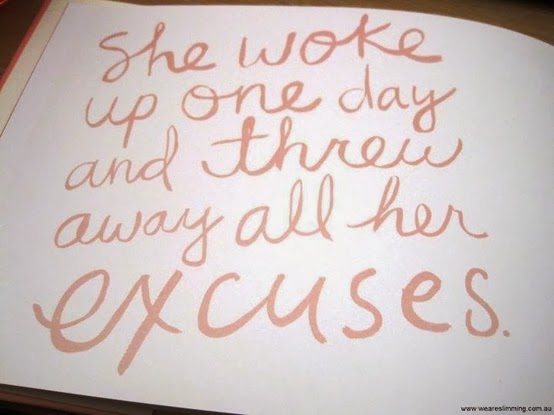 She woke
up one day
and threw
away all her
excuses.
www.weareslimming.com.au